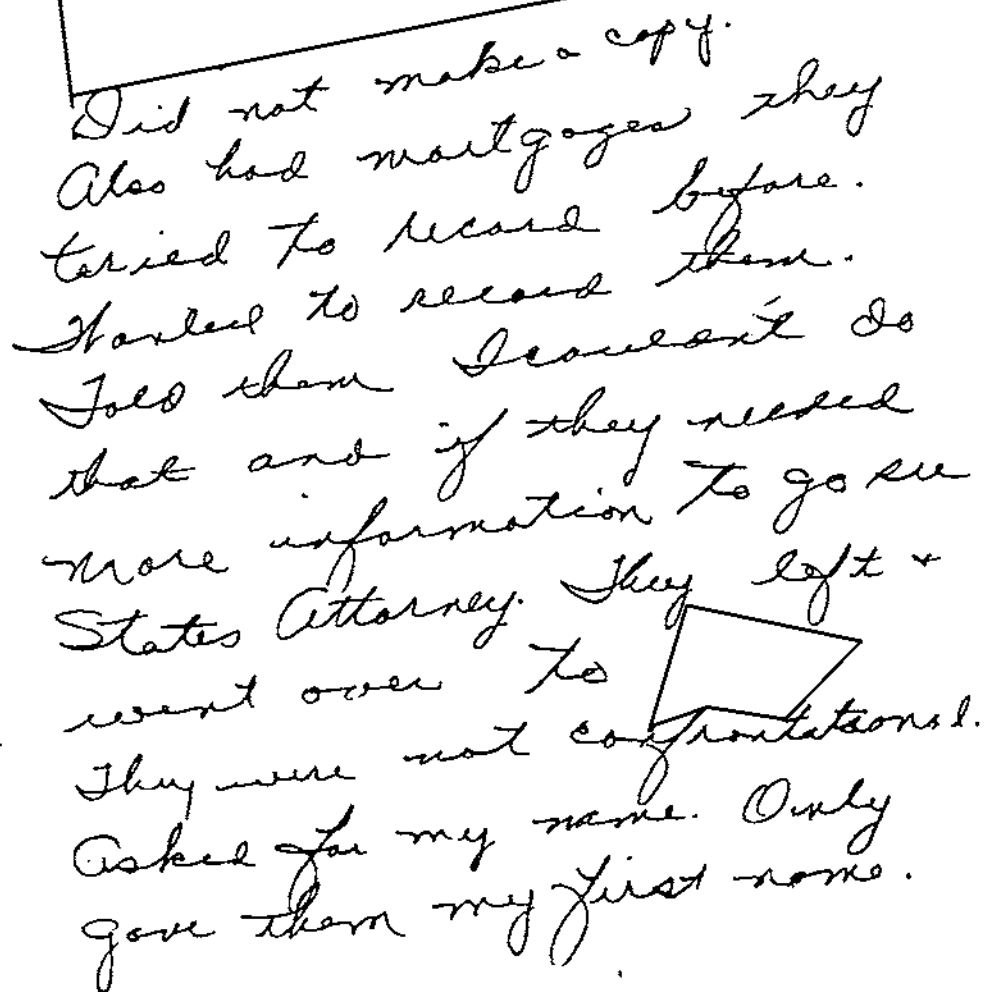 Did not make a copy.
Also had mortgages they
tried to record before.
Wanted to record them.
Told them I couldn't do
that and if they needed
more information to go see
States Attorney. They left +
went over to
They were not confrontational.
Asked for my name. Only
gave them my first name.